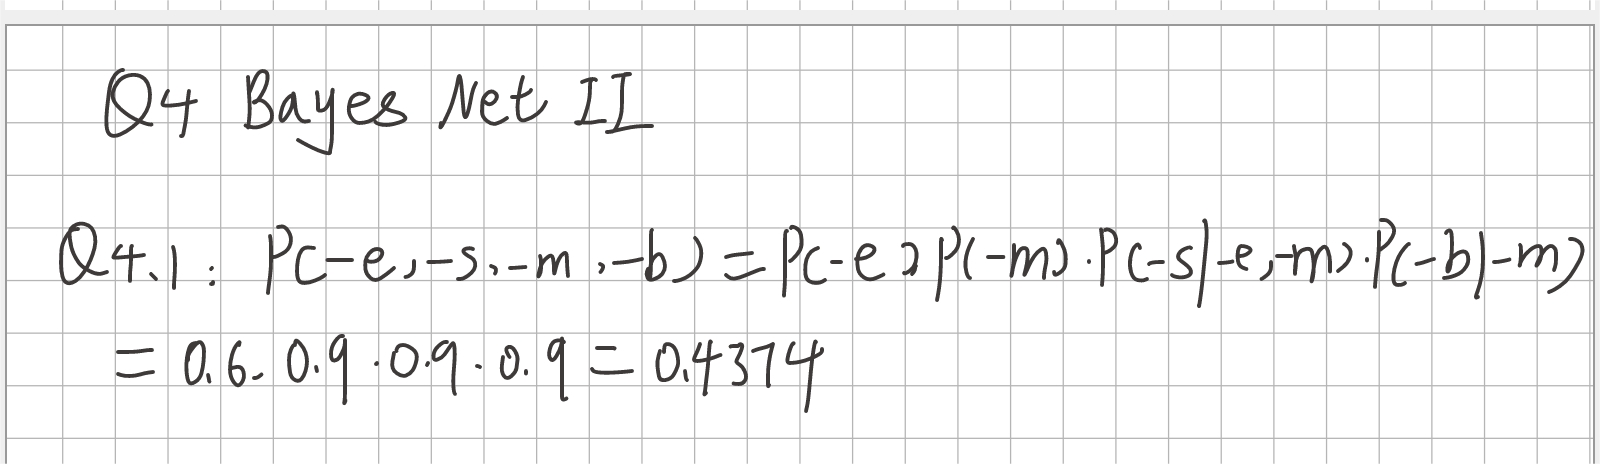 Q4 Bayes Net II
Q4.1: P(-e,-s,-m,-b) = P(-e)P(-m)·P(-s|-e,-m)·P(-b|-m)
= 0.6·0.9·0.9·0.9 = 0.4374